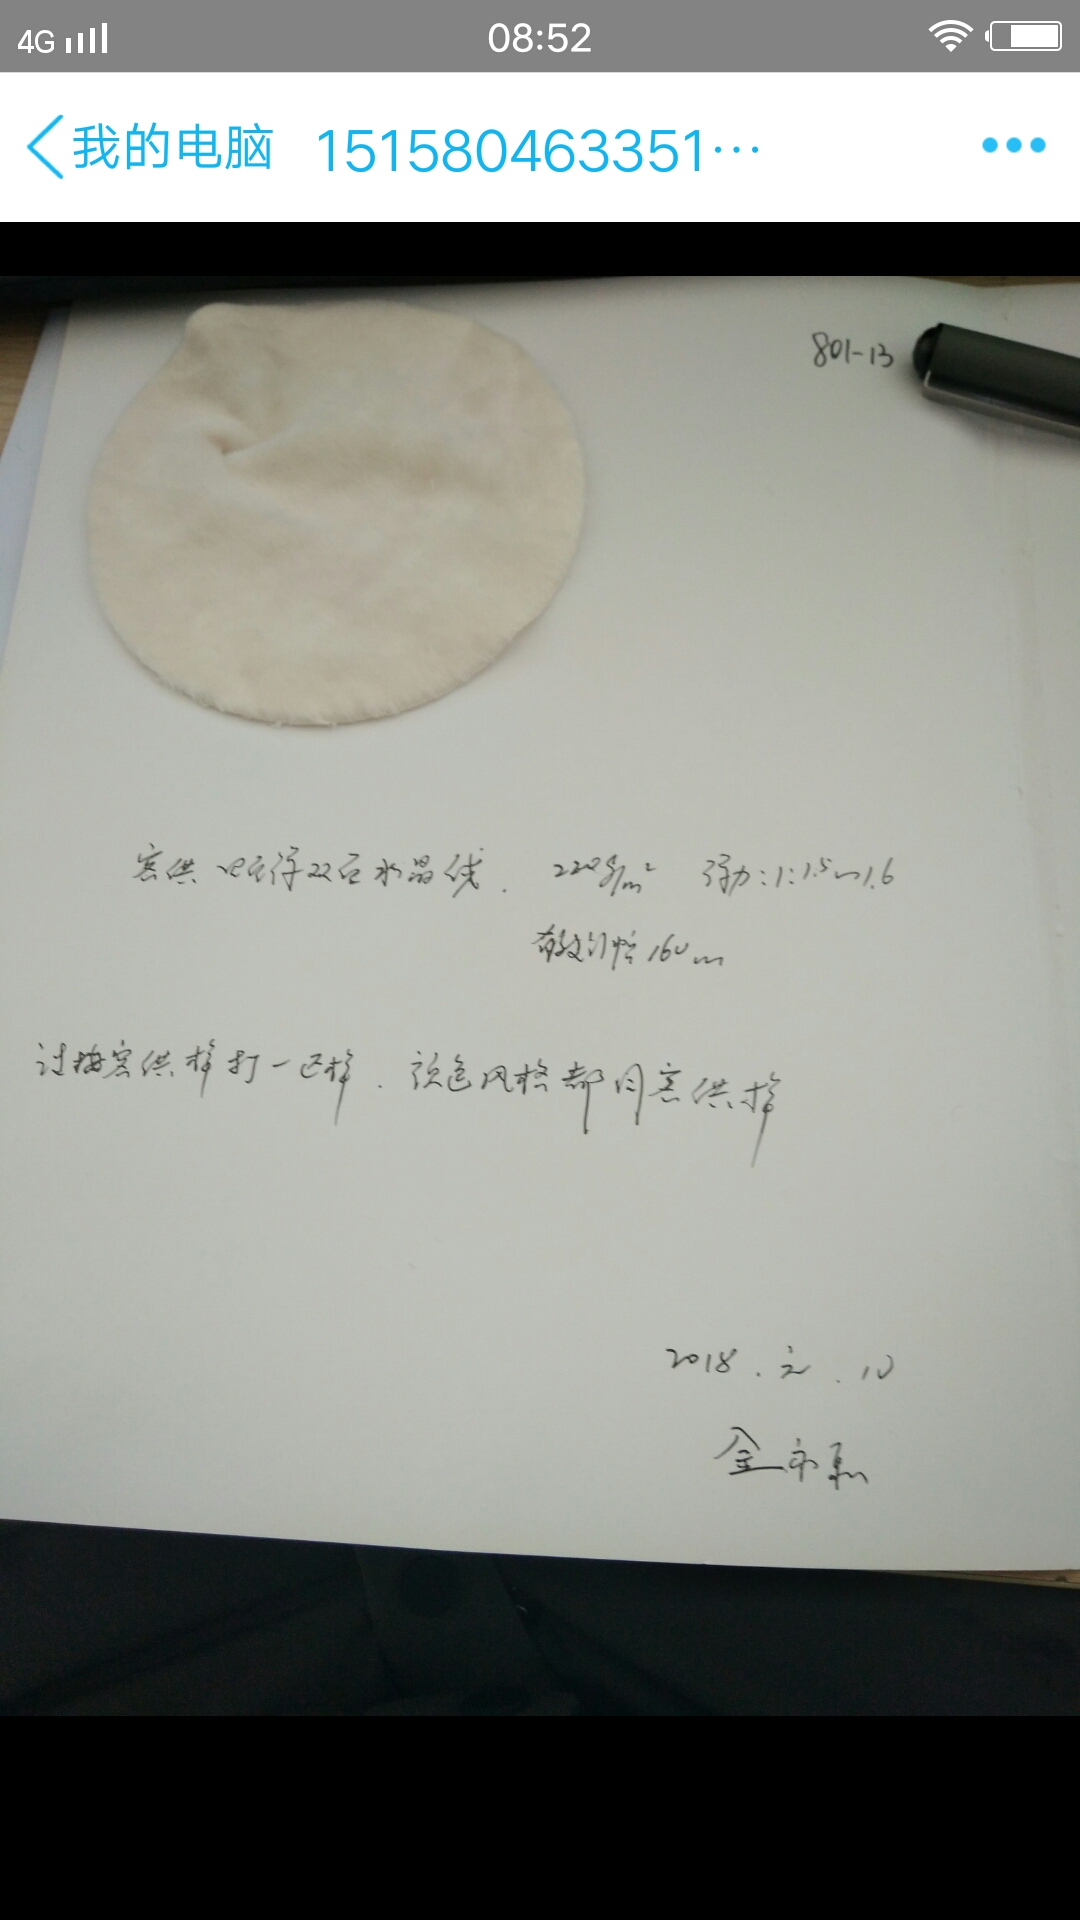 4G 08:52
我的电脑 151580463351…
801-13
客供 四面弹双面水晶绒. 220g/m² 弹力:1:1.5~1.6
有效门幅160cm
过梅客供样打一匹样. 颜色风格都同客供样
2018.元.10
金